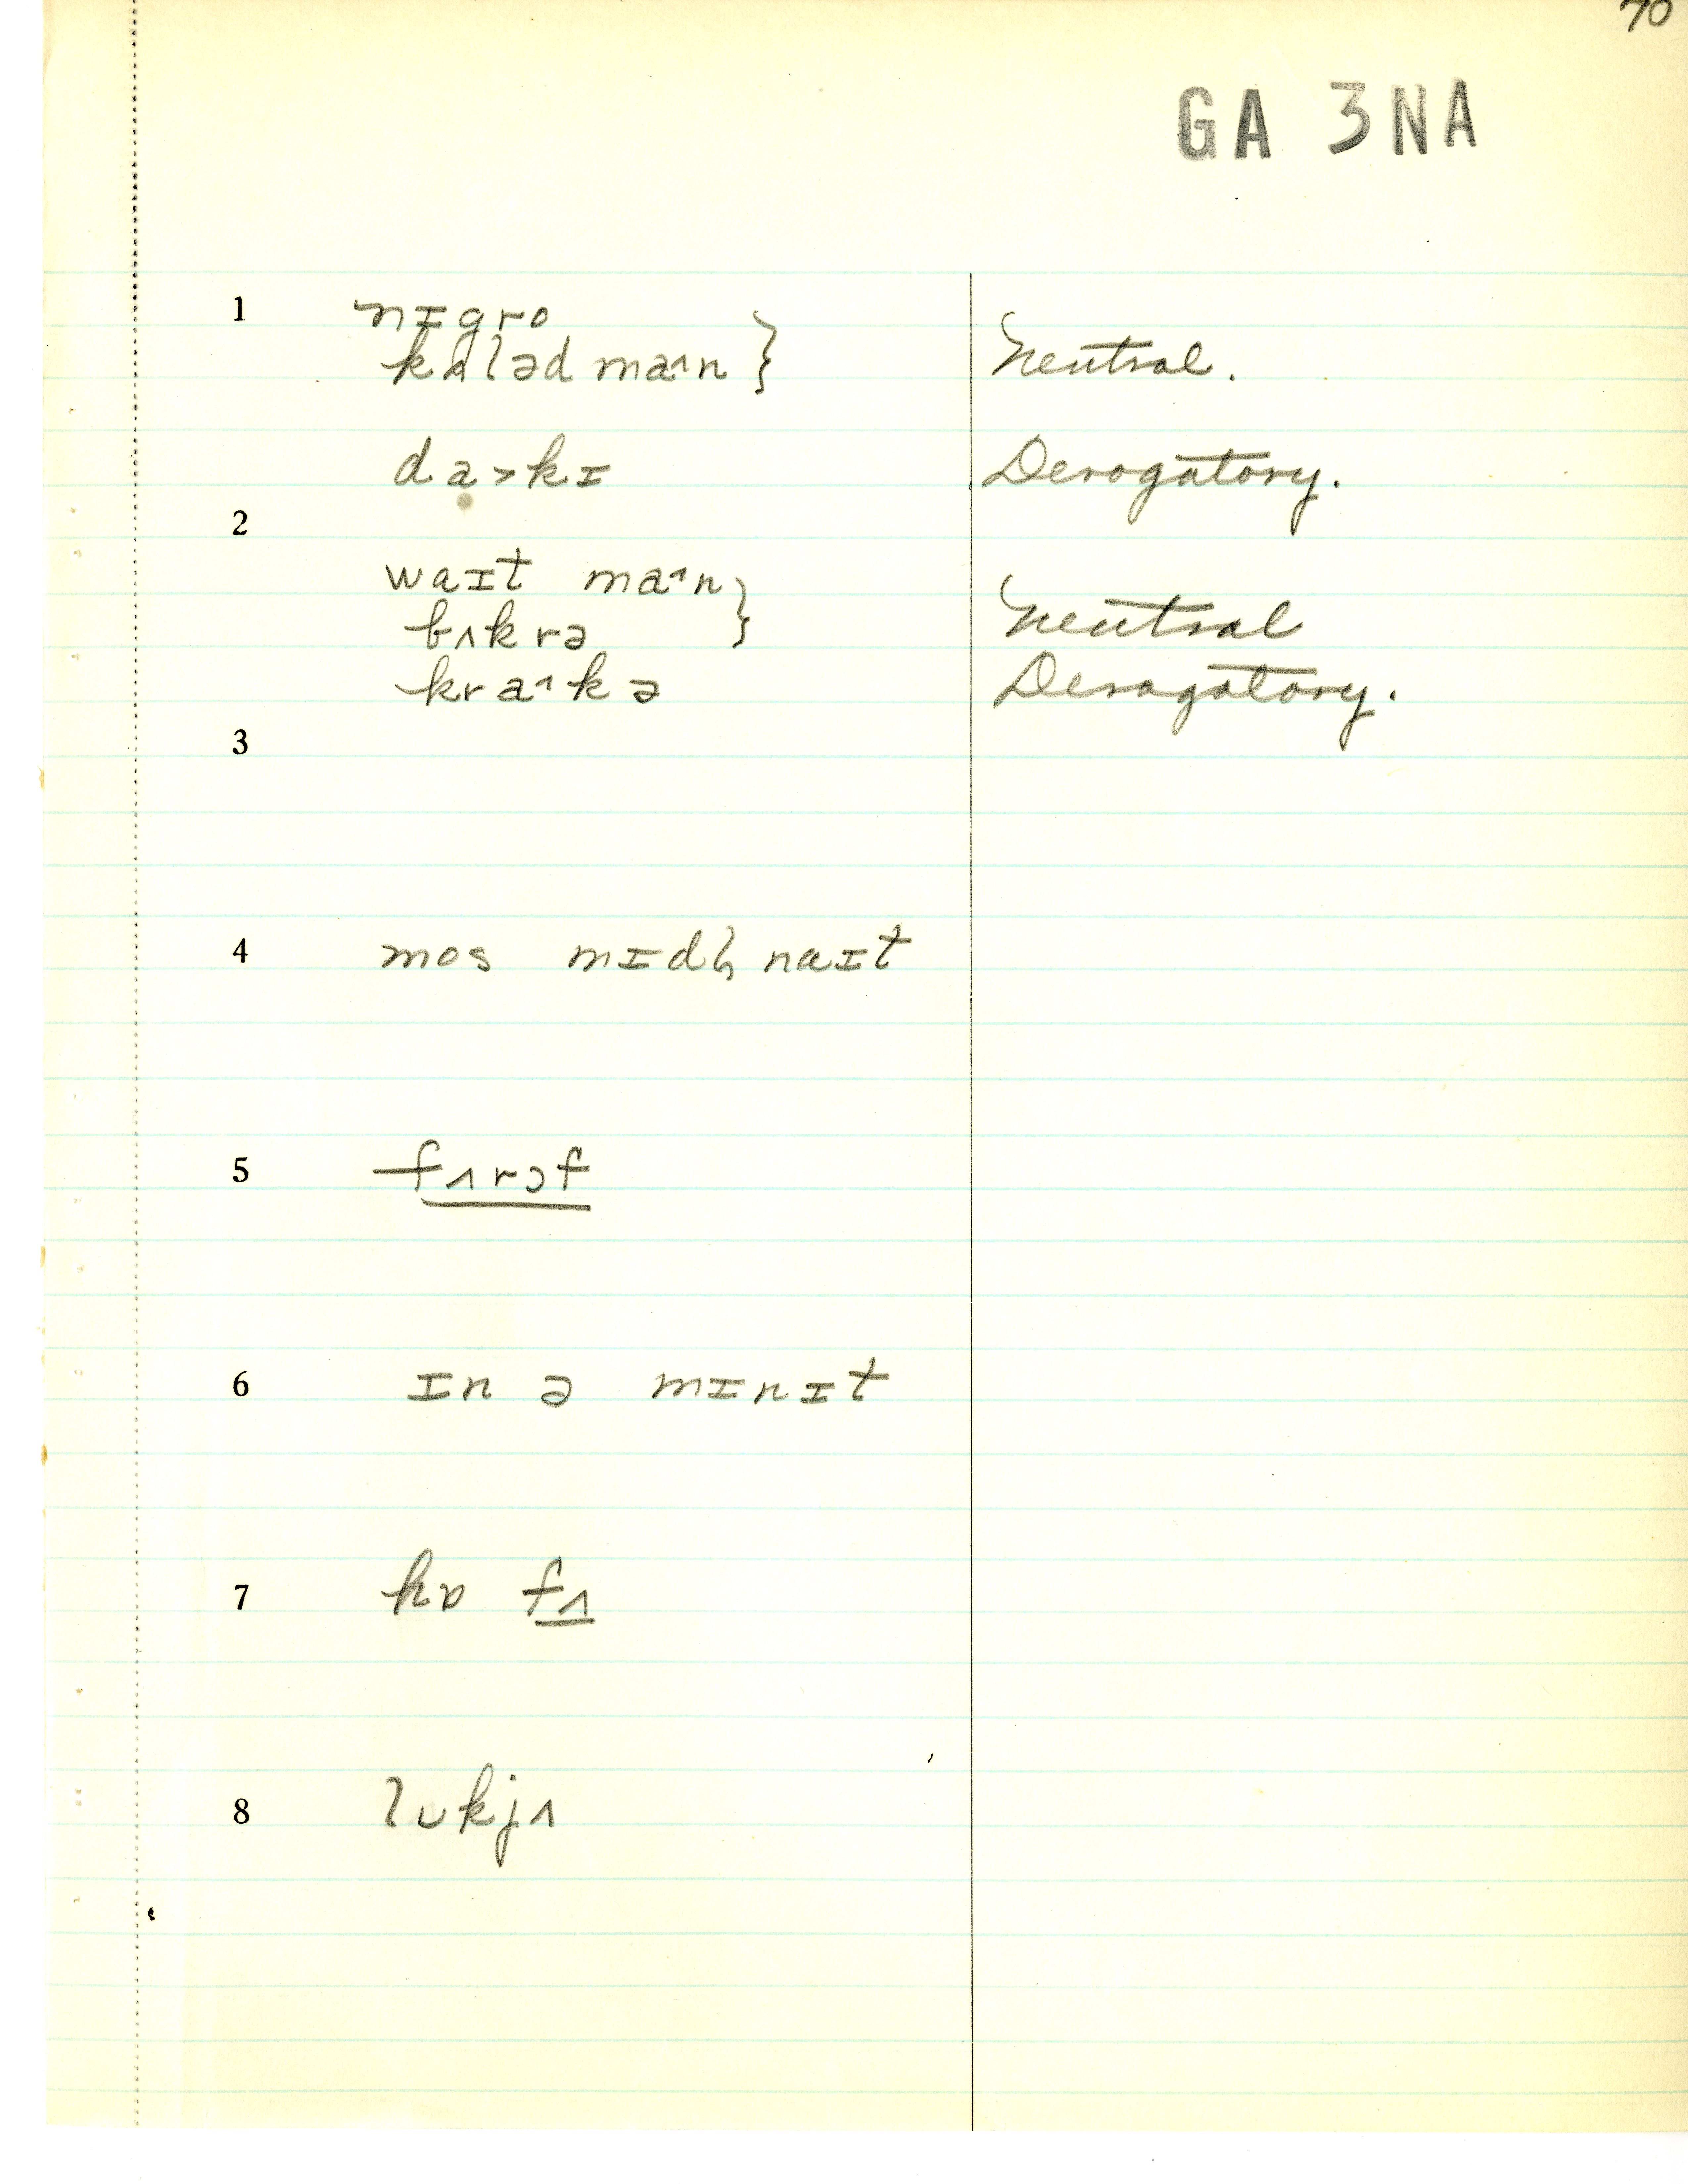 70
GA 3NA
1 nɪgro
kʌləd ma˄n } Neutral.
da>kɪ Derogatory.
2
waɪt ma˄n
bʌkrə } Neutral
kra˄kə Derogatory.
3
4 mos mɪdl̩ naɪt
5 fʌrɔf
6 ɪn ə mɪnɪt
7 hɒ fʌ
8 lʊkjʌ